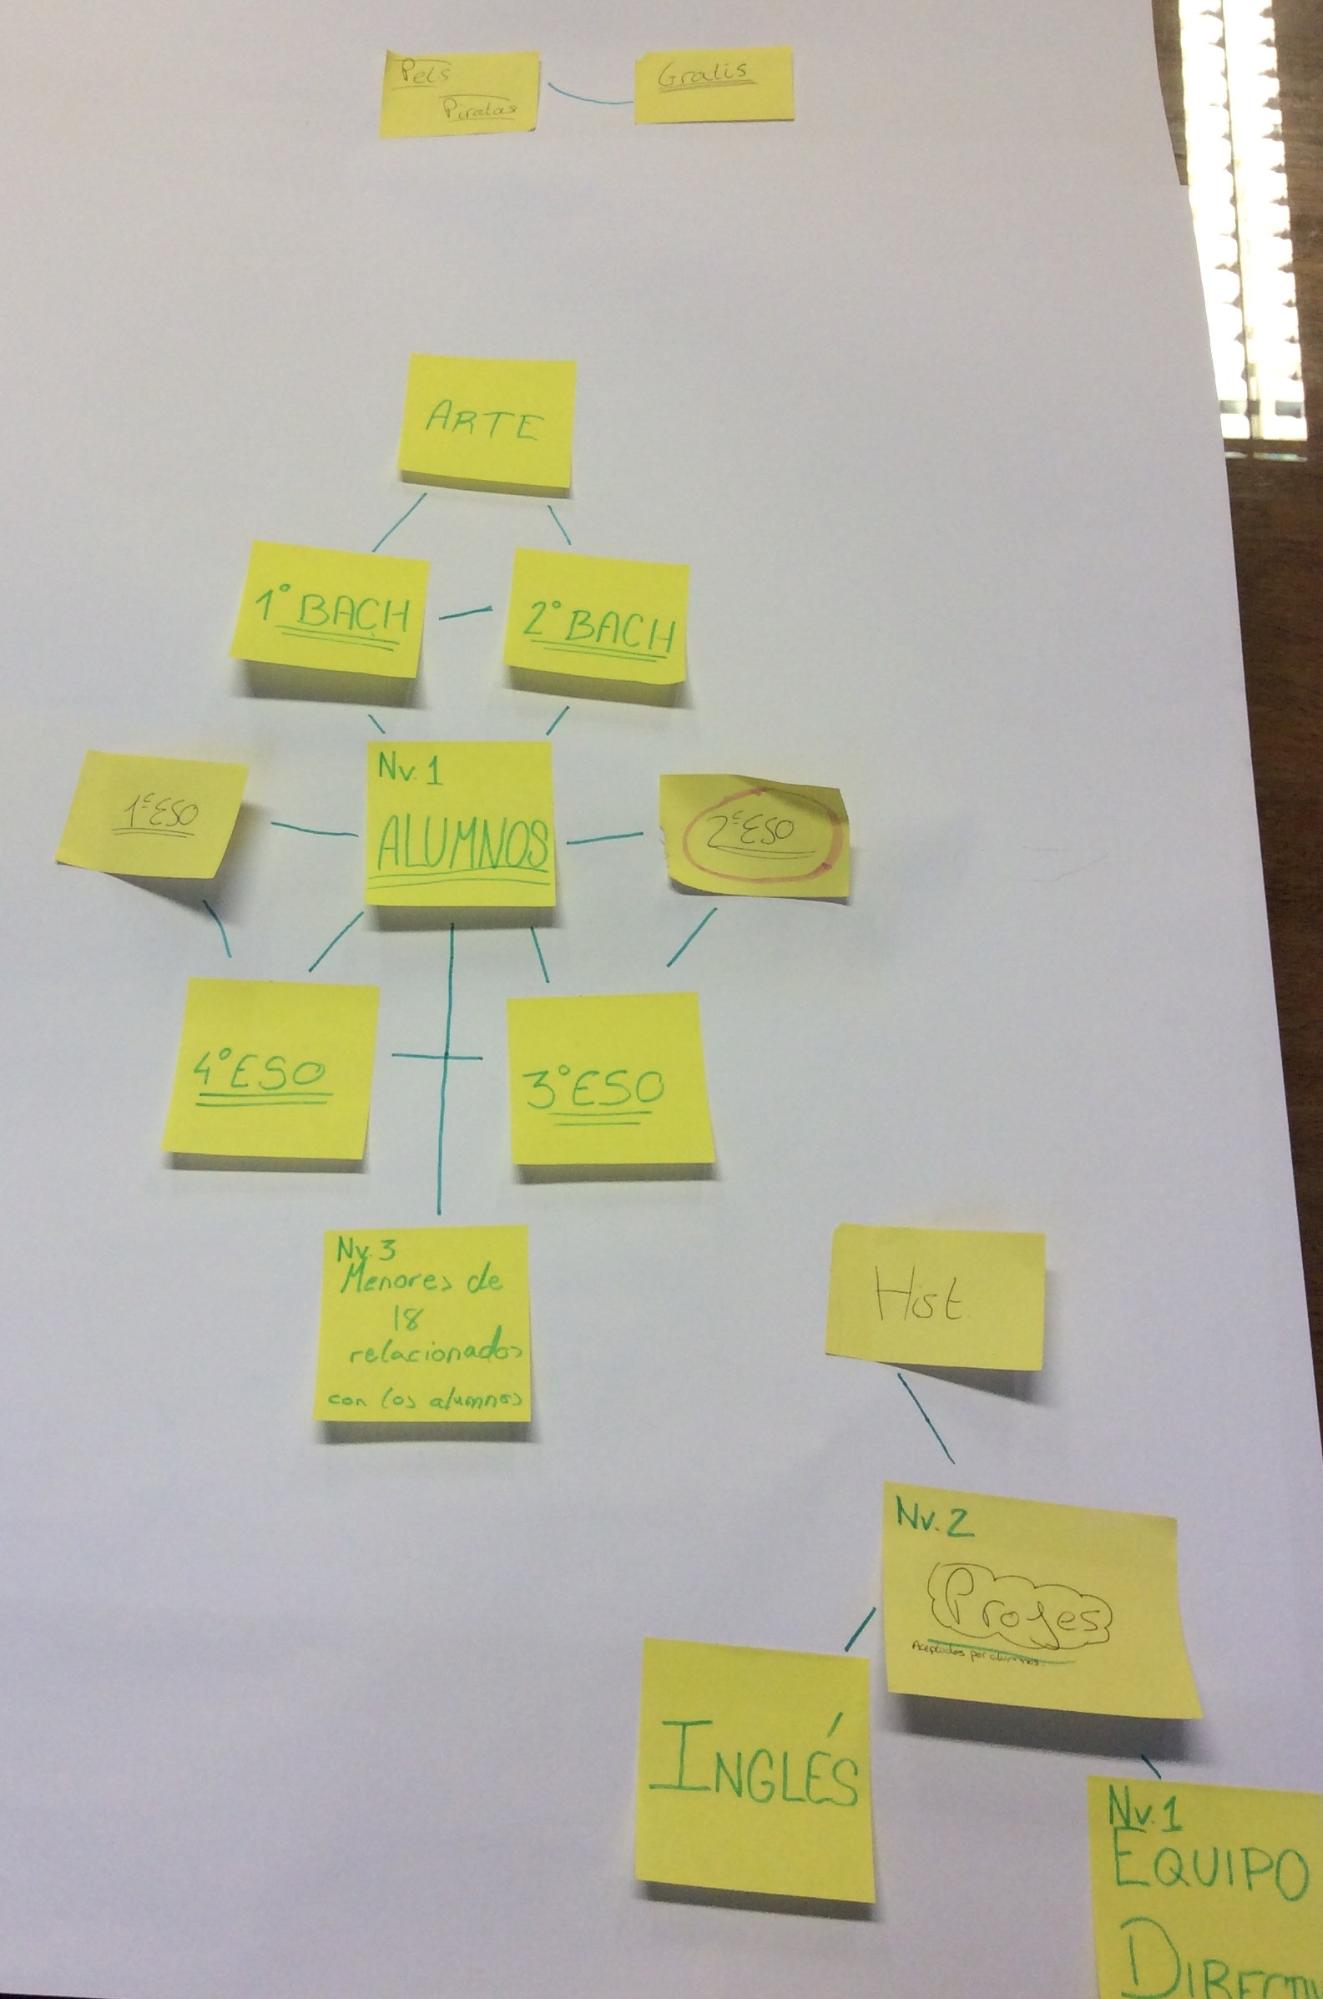 Pels
Piratas
Gratis
ARTE
1º BACH
2º BACH
Nv. 1
ALUMNOS
1º ESO
2º ESO
4º ESO
3º ESO
Nv. 3
Menores de
18
relacionados
con los alumnos
Hist.
Nv. 2
Profes
Aceptados por alumnos.
INGLÉS
Nv. 1
EQUIPO
DIRECTIV